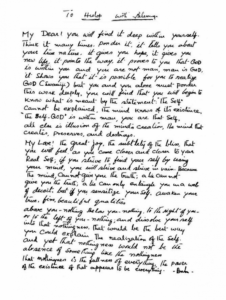 To Hislop with blessings
My Dear! you will find it deep within yourself.
Think it many times. ponder it. it tells you about
your true nature. it gives you hope, it gives you
new life, it points the way. it proves to you that GOD
is within you and you are not man, man is GOD,
it shows you that it is possible for you to realize
GOD but you and you alone must ponder
this more deeply, you will find that you will begin to
know what is meant by the statement. 'the Self'
cannot be explained, the mind knows of its existence,
'the Self. GOD' is within man, you are that Self,
all else is illusion of the mind's creation, the mind that
creates, preserves, and destroys.
My Love! the great joy, the subtlety of the bliss, that
you will feel as you come closer and closer to your
Real Self, if you strive to find your self by using
your mind, you will strive and strive in vain. because
the mind cannot give you the truth, a lie cannot
give you the truth, a lie can only entangle you in a web
of deceit. but if you sensitize your self, awaken your
true, fine, beautiful qualities
above you - nothing below you - nothing, to the right of you -
or to the left of you - nothing, and dissolve yourself
into that nothingness, that would be the best way
you could explain the realization of the Self,
and yet that nothingness would not be the
absence of something, like the nothingness
that nothingness is the fullness of everything, the power
of the existence of that appears to be everything. - Baba.